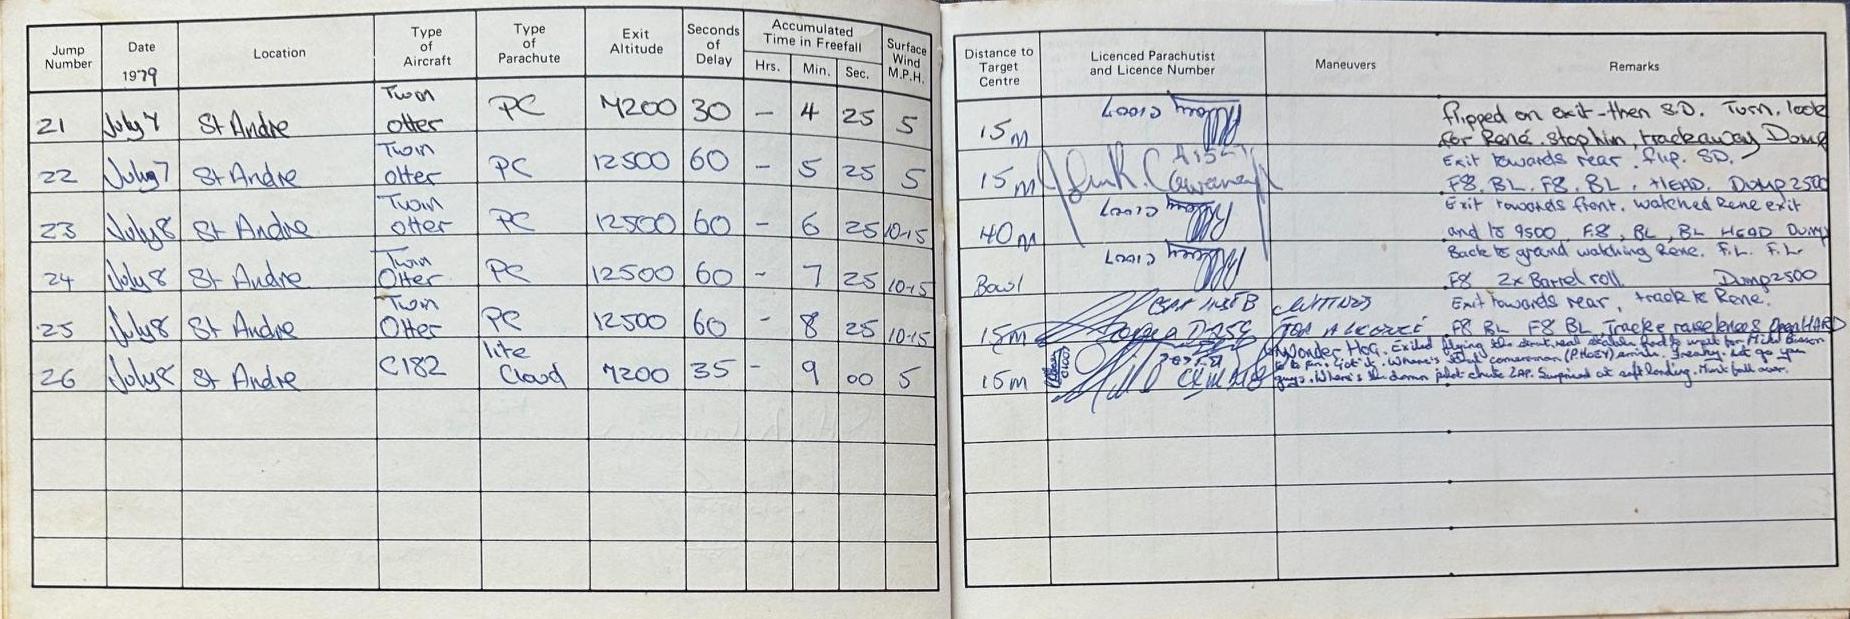 Jump Number
Date 1979
Location
Type of Aircraft
Type of Parachute
Exit Altitude
Seconds of Delay
Accumulated Time in Freefall
Hrs. Min. Sec.
Surface Wind M.P.H.
Distance to Target Centre
Licenced Parachutist and Licence Number
Maneuvers
Remarks
21 July 7 St Andre Twin Otter PC 7200 30 - 4 25 5
15m C1007
flipped on exit - then S.D. Turn. look
for René. stop him, track away Dump
22 July 7 St Andre Twin Otter PC 12500 60 - 5 25 5
15m John R.
Exit towards rear. flip. SD.
F8. BL. F8. BL. HEAD. Dump 2500
23 July 8 St Andre Twin otter PC 12500 60 - 6 25 10-15
40m C1007
Exit towards front. watched Rene exit
and to 9500 F8, BL, BL HEAD Dump
24 July 8 St Andre Twin Otter PC 12500 60 - 7 25 10-15
Bowl C1007
Back to grand watching Rene. F.L. F.L.
F8 2x Barrel roll. Dump 2500
25 July 8 St Andre Twin Otter PC 12500 60 - 8 25 10-15
15m
Exit towards rear, track to Rene.
F8 BL F8 BL Track raise OPEN HARD
26 July 8 St Andre C182 lite Cloud 7200 35 - 9 00 5
15m
Wonder Hog. Exited flying the strut, had to wait for
Where's cameraman smile. Freaky. Let go you
guys. Where's the damn pilot-chute ZAP. Surprised at soft landing.